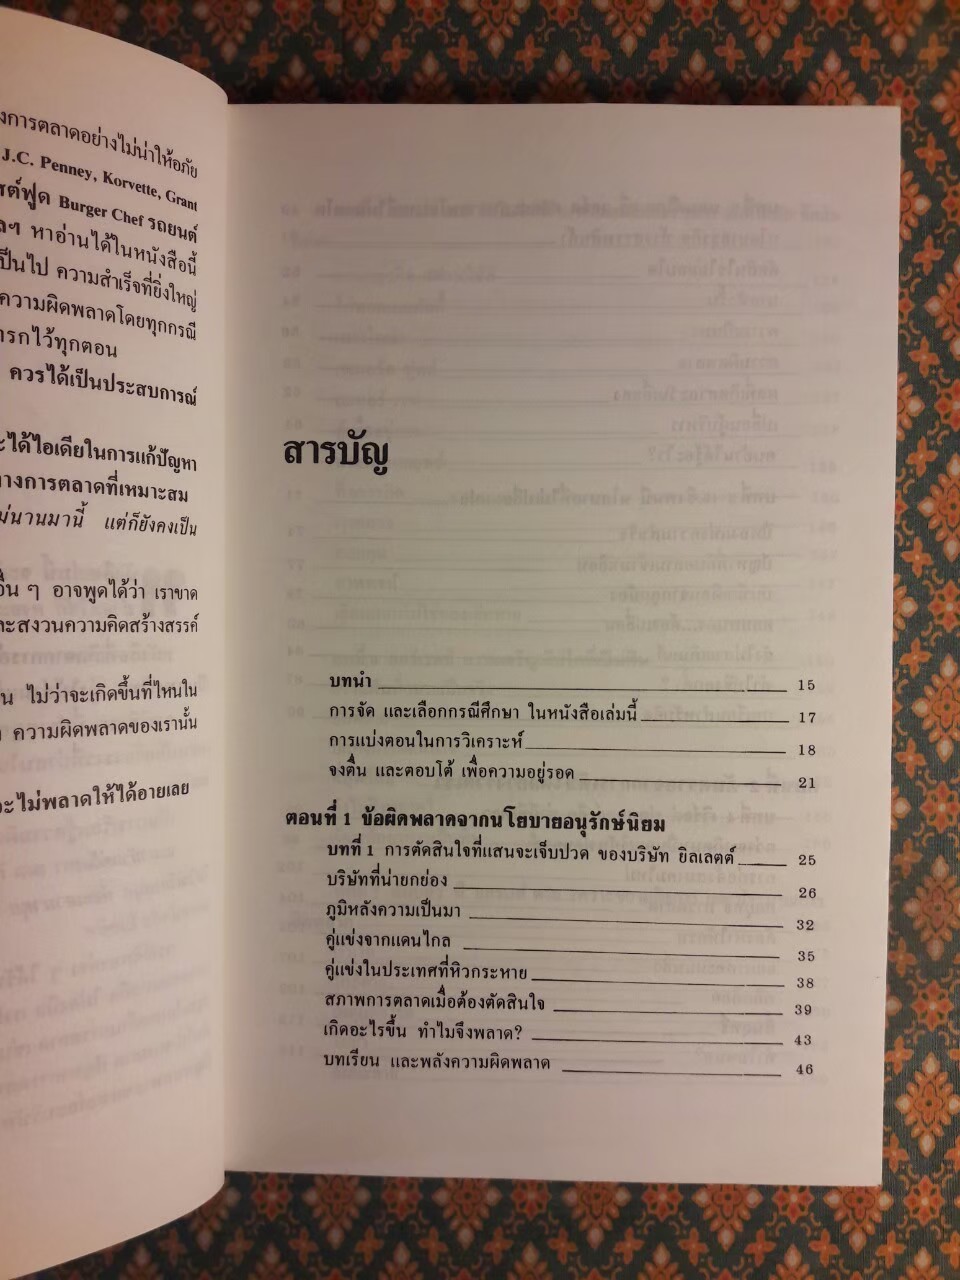 งการตลาดอย่างไม่น่าให้อภัย
J.C. Penney, Korvette, Grant
ฟูด Burger Chef รถยนต์
ลฯ หาอ่านได้ในหนังสือนี้
เป็นไป ความสำเร็จที่ยิ่งใหญ่
ความผิดพลาดโดยทุกกรณี
ไว้ทุกตอน
ควรได้เป็นประสบการณ์
ะได้ไอเดียในการแก้ปัญหา
างการตลาดที่เหมาะสม
ม่นานมานี้ แต่ก็ยังคงเป็น
อื่น ๆ อาจพูดได้ว่า เราขาด
ละสงวนความคิดสร้างสรรค์
น ไม่ว่าจะเกิดขึ้นที่ไหนใน
ความผิดพลาดของเรานั้น
ะไม่พลาดให้ได้อายเลย
สารบัญ
บทนำ 15
การจัด และเลือกกรณีศึกษา ในหนังสือเล่มนี้ 17
การแบ่งตอนในการวิเคราะห์ 18
จงตื่น และตอบโต้ เพื่อความอยู่รอด 21
ตอนที่ 1 ข้อผิดพลาดจากนโยบายอนุรักษ์นิยม
บทที่ 1 การตัดสินใจที่แสนจะเจ็บปวด ของบริษัท ยิลเลตต์ 25
บริษัทที่น่ายกย่อง 26
ภูมิหลังความเป็นมา 32
คู่แข่งจากแดนไกล 35
คู่แข่งในประเทศที่หิวกระหาย 38
สภาพการตลาดเมื่อต้องตัดสินใจ 39
เกิดอะไรขึ้น ทำไมจึงพลาด? 43
บทเรียน และพลังความผิดพลาด 46